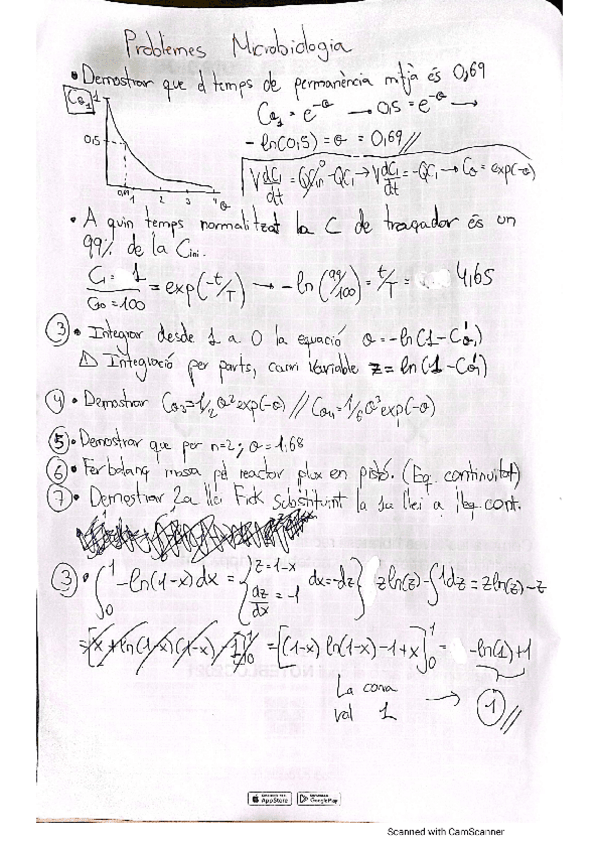 Problemes Microbiologia
• Demostrar que el temps de permanència mitjà és 0,69
Cθ1 1
Cθ1 = e^-θ → 0,5 = e^-θ →
0,5
-ln(0,5) = θ = 0,69 //
V dC1/dt = QCin^0 - QC1 → V dC1/dt = -QC1 → Cθ = exp(-θ)
0,69 1 2 3 4 θ
• A quin temps normalitzat la C de traçador és un
99% de la Cini.
C1 = 1 / C10 = 100 = exp(-t/T) → -ln(99/100) = t/T = 4,65
③ • Integrar desde 1 a 0 la equació θ = -ln(1-Cθ1)
⚠ Integració per parts, canvi variable z = ln(1-Cθ1)
④ • Demostrar Cθ3 = 1/2 θ² exp(-θ) // Cθ4 = 1/6 θ³ exp(-θ)
⑤ • Demostrar que per n=2; θ = 1,68
⑥ • Fer balanç massa pel reactor flux en pistó. (Eq. continuitat)
⑦ • Demostrar 2a llei Fick substituint la 1a llei a l'eq. cont.
③ • ∫₀¹ -ln(1-x)dx = { z=1-x dz/dx = -1 dx=-dz } zln(z) - ∫1dz = zln(z) - z
= [x+ln(1-x)(1-x)-1]₀¹ = [(1-x) ln(1-x) -1+x]₀¹ = -ln(1)+1
La cona → ① //
val 1
AppStore
GooglePlay
Scanned with CamScanner